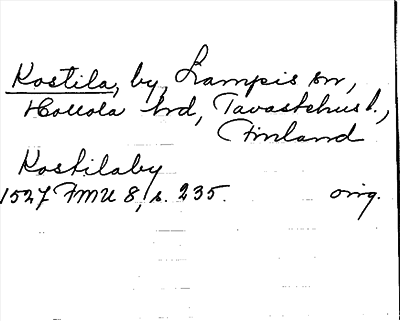 Kostila, by, Lampis sn,
Hollola hrd, Tavastehus l.,
Finland
Kostilaby
1527 FMU 8, s. 235. orig.